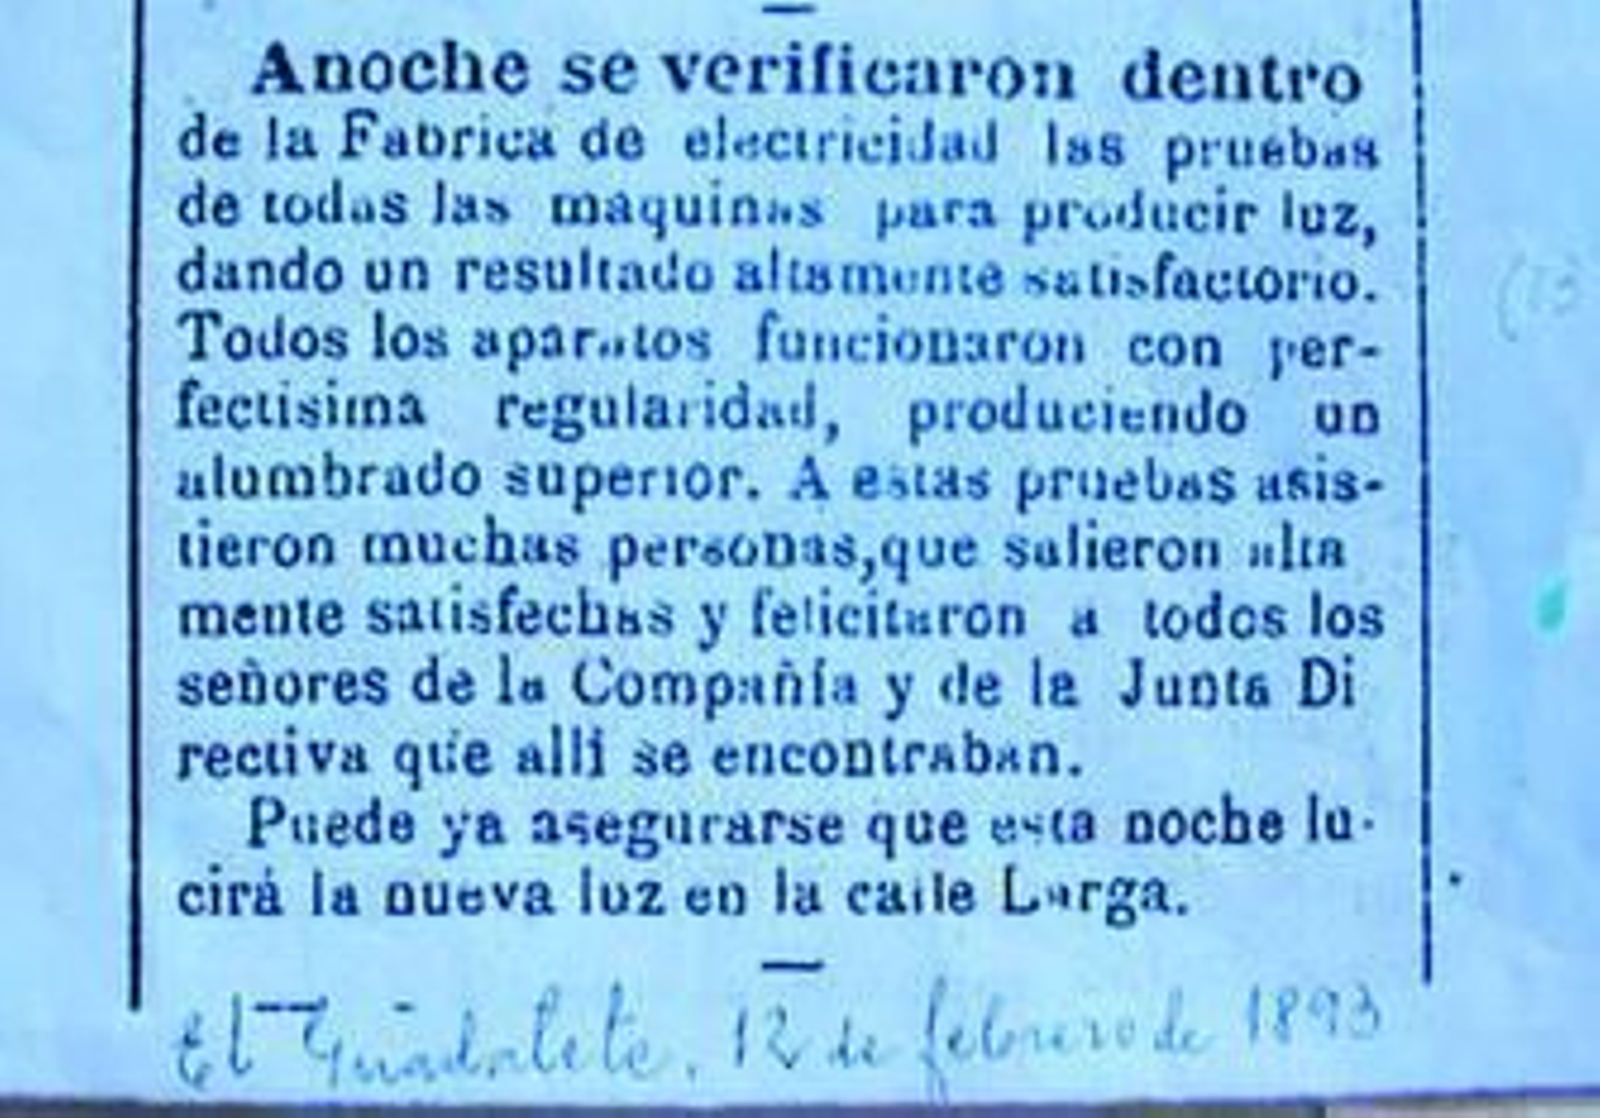 Anoche se verificaron dentro
de la Fabrica de electricidad las pruebas
de todas las maquinas para producir luz,
dando un resultado altamente satisfactorio.
Todos los aparatos funcionaron con per-
fectisima regularidad, produciendo un
alumbrado superior. A estas pruebas asis-
tieron muchas personas,que salieron alta
mente satisfechas y felicitaron a todos los
señores de la Compañía y de la Junta Di
rectiva que allí se encontraban.
Puede ya asegurarse que esta noche lu-
cirá la nueva luz en la calle Larga.
El Guadalete, 12 de febrero de 1893